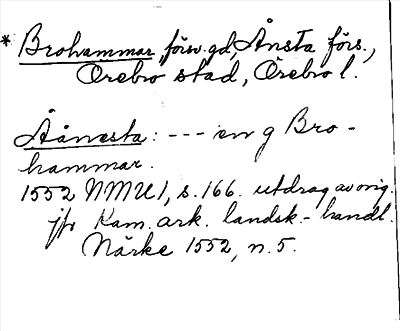 * Brohammar, försv. gd, Ånsta förs.,
Örebro stad, Örebro l.
Åånesta: --- en g Bro-
hammar.
1552 NMU 1, s. 166. utdrag av orig.
jfr Kam. ark. landsk.-handl.
Närke 1552, n. 5.